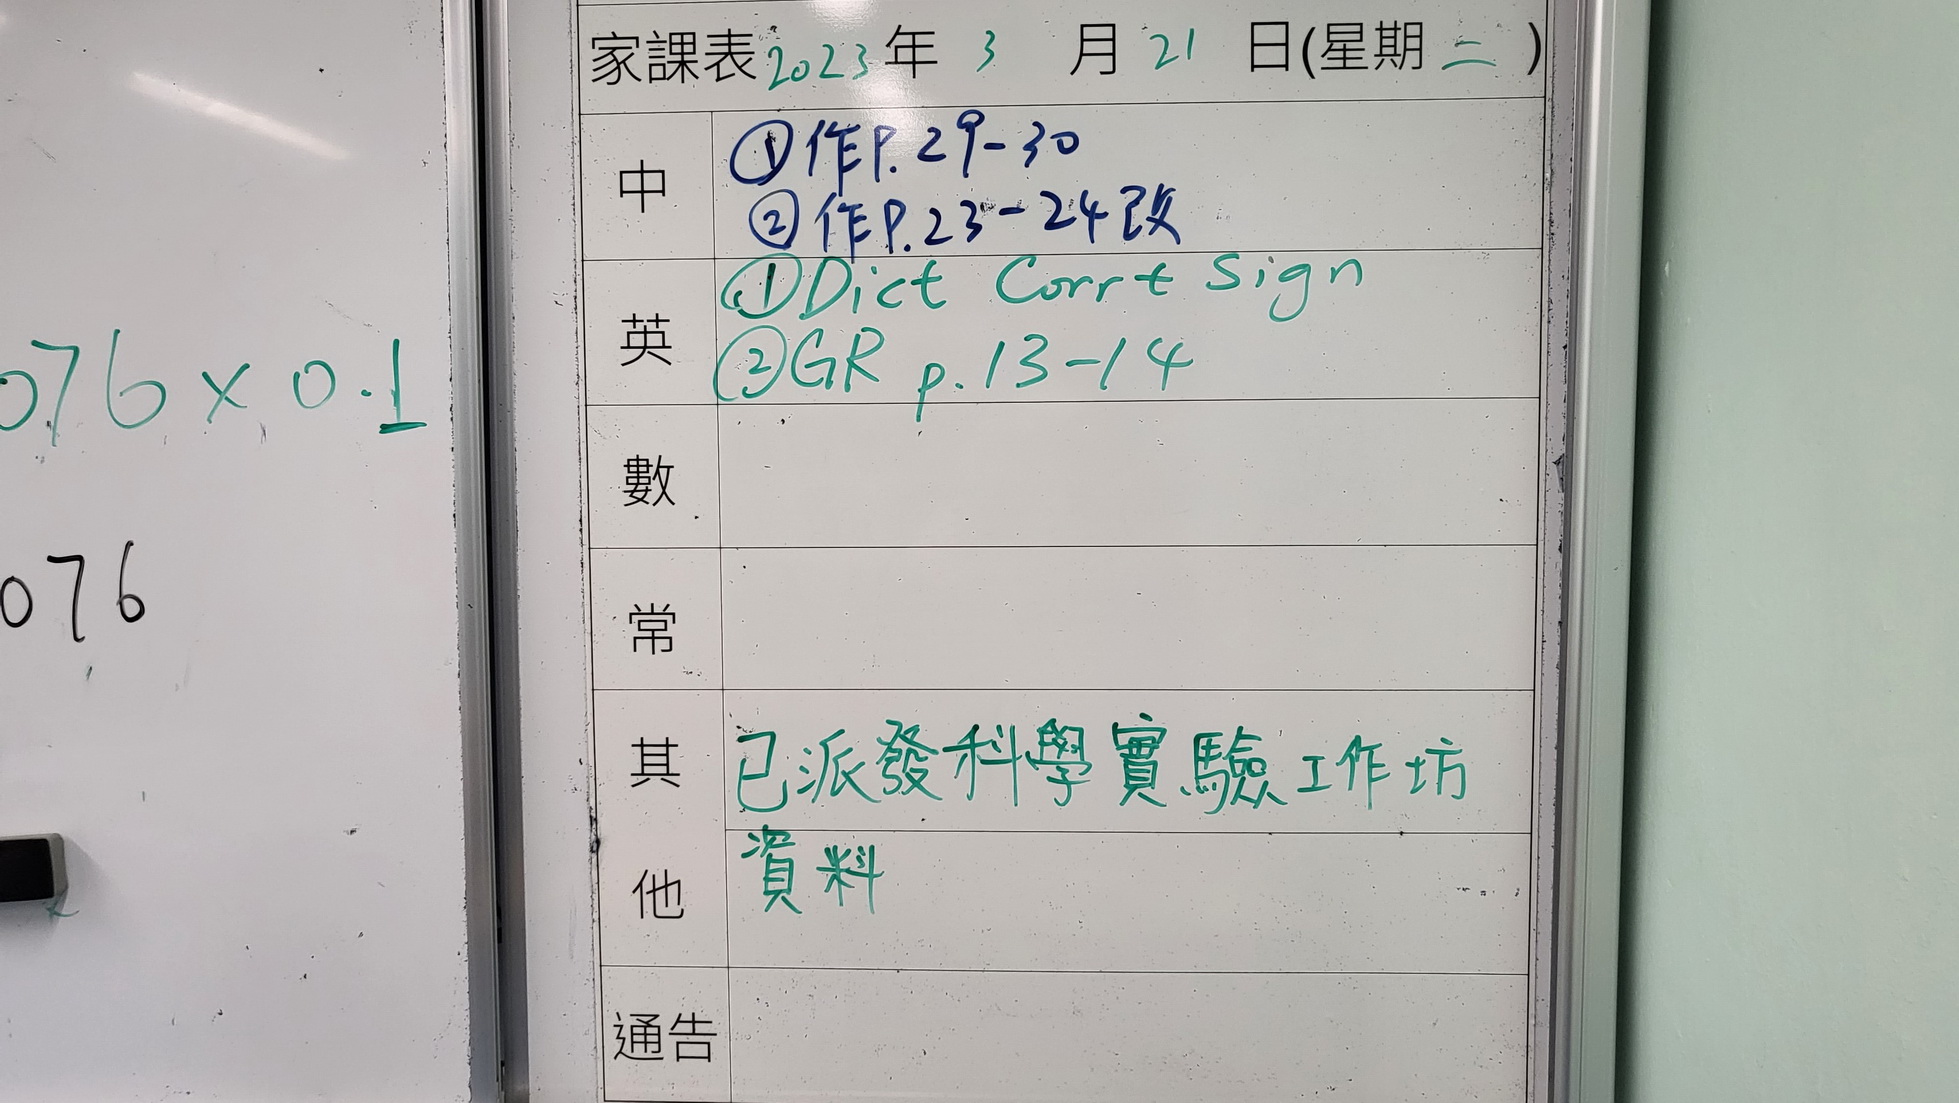 家課表 2023 年 3 月 21 日(星期 二 )
中
①作P.29-30
②作P.23-24改
英
①Dict Corr+ Sign
②GR p.13-14
數
常
其他
已派發科學實驗工作坊
資料
通告
076 × 0.1
076